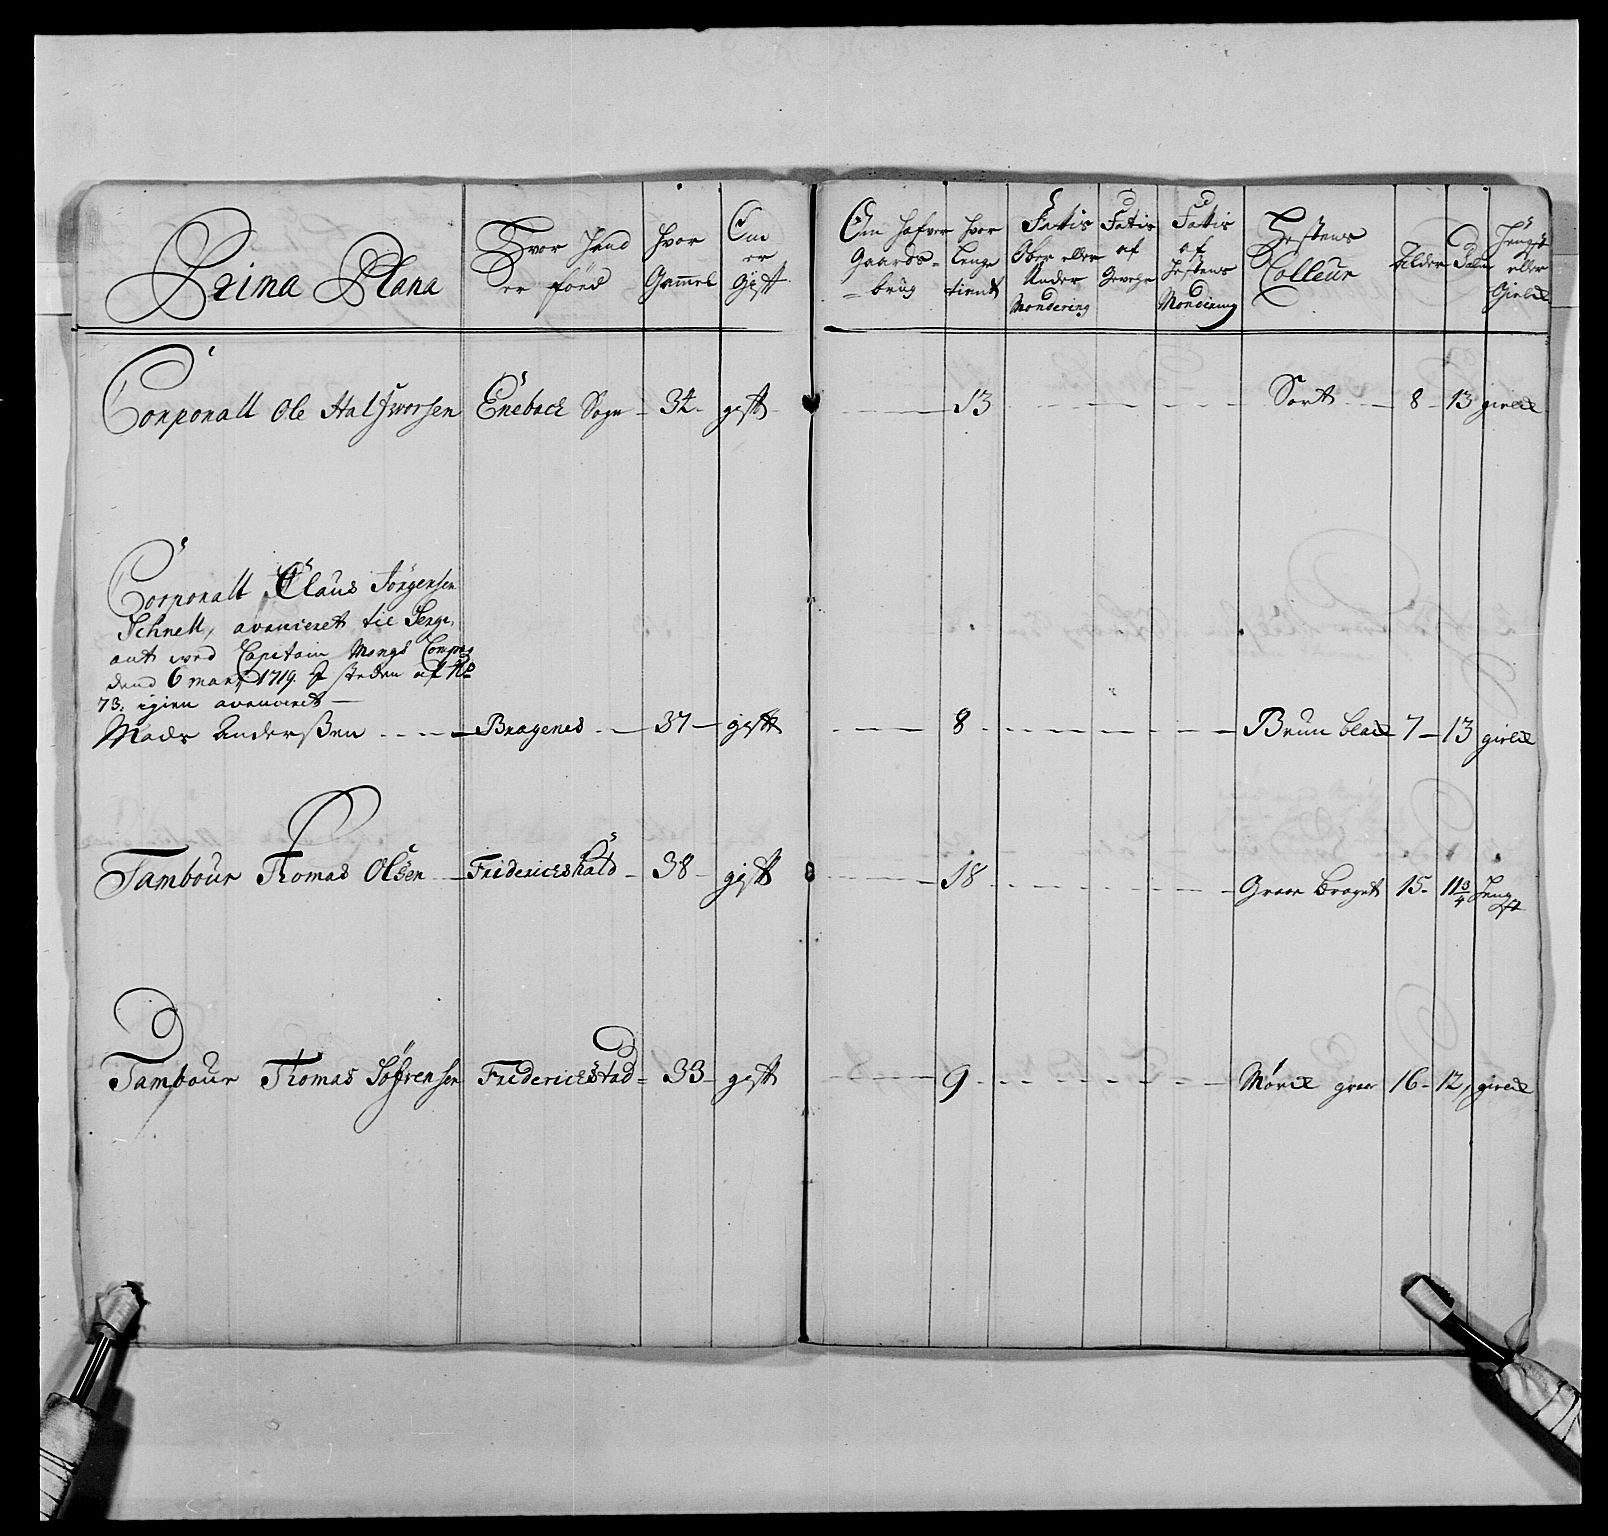 Prima Plana
Hvor hand er föed
hvor Gammel
Om er Gift
Om hafver Gaards-brug
hvor lenge tient
Fattis Ober eller Under Mondering
Fatis af Gevehr
Fattis af hestens Mondering
Hestens Colleur
Alder
Palm
Hengst eller Gield
Corporall Ole Halfworsen Enebach Sogn 34 gift 13 Sort 8 13 gield
Corporall Claus Jörgensen
Schnell, avanceret til Serge,
ant ved Capitain Mongs Compag
dend 6 marti 1719. I steden af No
73. igien avanceret
Mads Anderßen Bragenes 37 gift 8 Brun blact 7 13 gield
Tambour Thomas Olsen Fridericshald 38 gift 18 Graae braget 15 11 3/4 Hengst
Tambour Thomas Söfrensen Friderichstad 33 gift 9 Mörck graa 16 12 gield